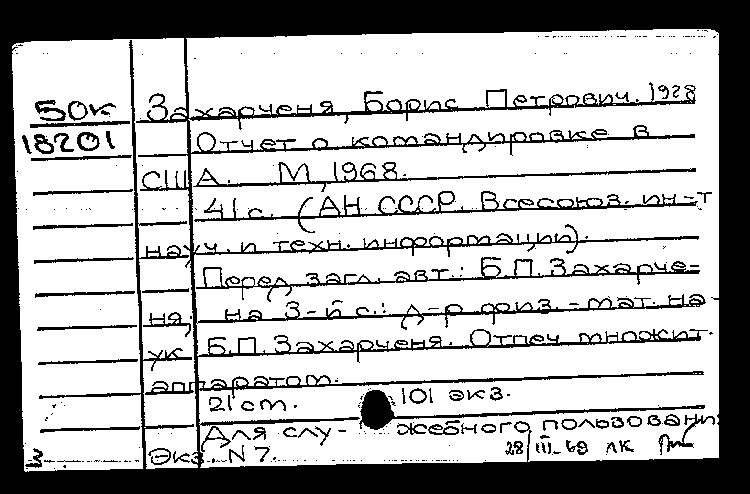 50к Захарченя, Борис Петрович. 1928
18201 Отчет о командировке в
США. М, 1968.
41 с. (АН СССР. Всесоюз. ин-т
науч. и техн. информации).
Перед загл. авт.: Б.П. Захарче-
ня, на 3-й с.: д-р физ.-мат. на-
ук Б.П. Захарченя. Отпеч множит.
аппаратом.
21 ст. 101 экз.
Для слу- жебного пользовани
Экз. N 7. 28/III-69 ЛК